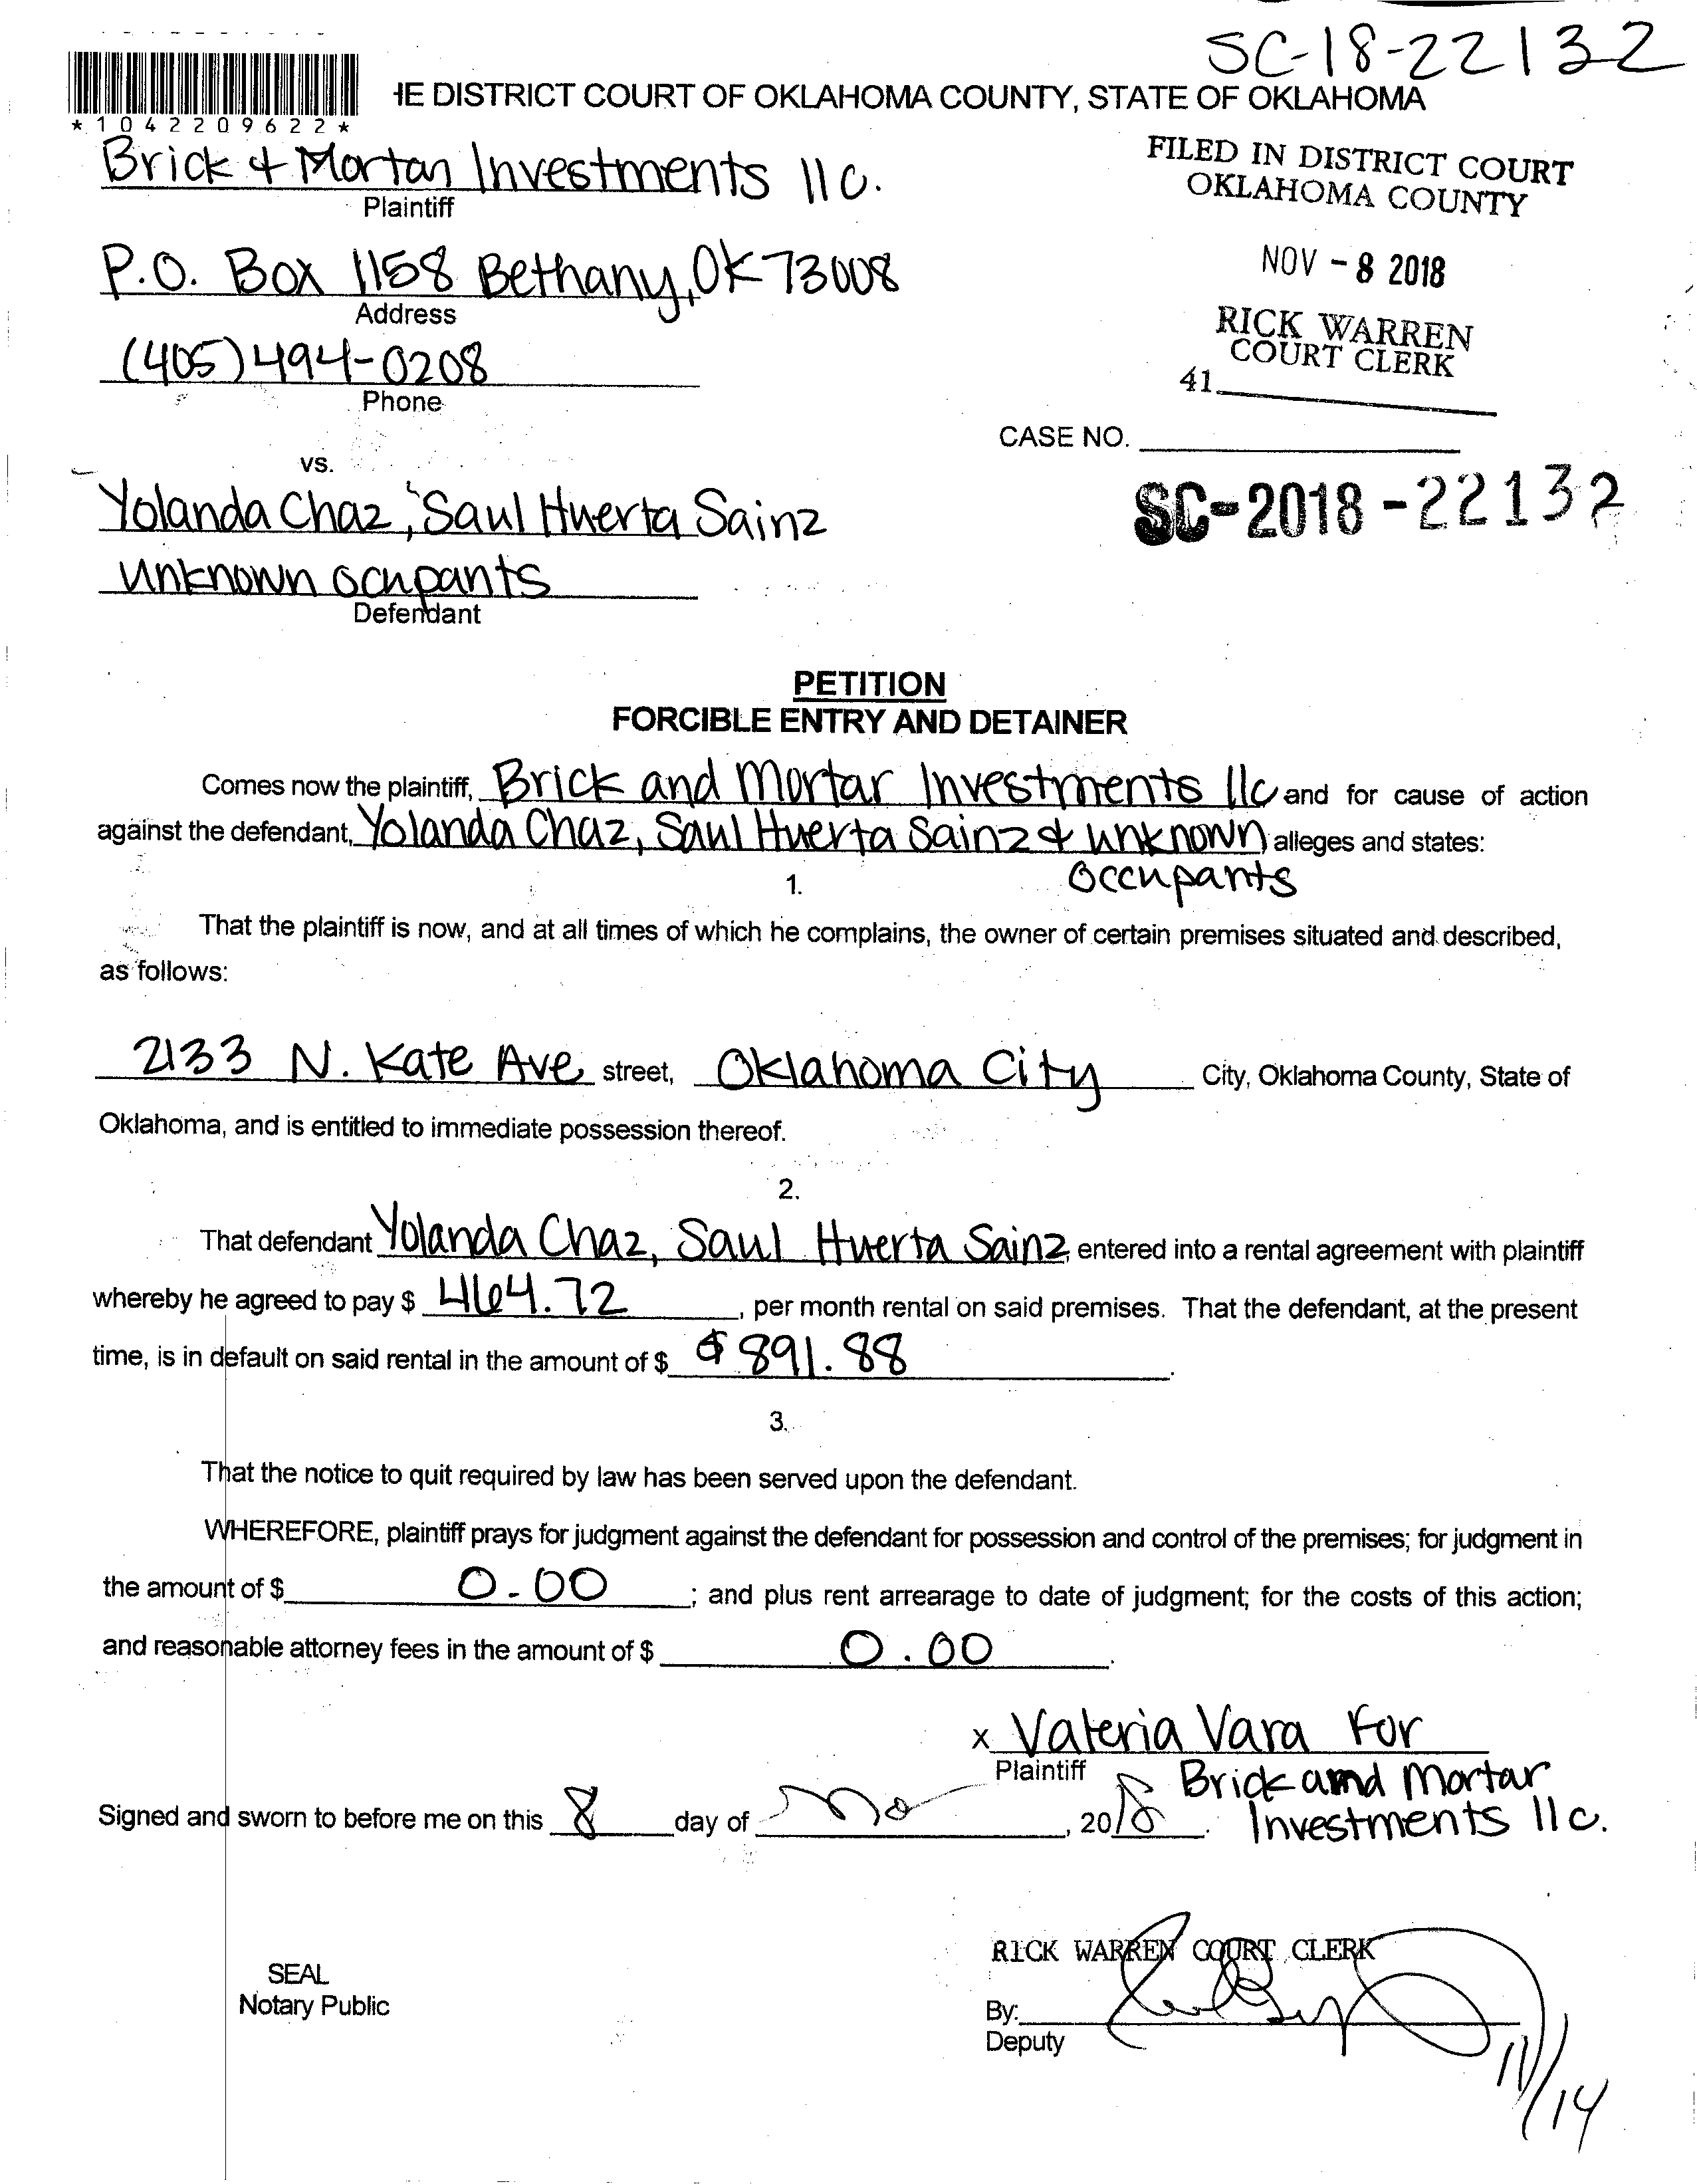 SC-18-22132
*1042209622*
HE DISTRICT COURT OF OKLAHOMA COUNTY, STATE OF OKLAHOMA
Brick & Mortan Investments llc.
Plaintiff
FILED IN DISTRICT COURT
OKLAHOMA COUNTY
P.O. Box 1158 Bethany, OK 73008
Address
NOV - 8 2018
(405) 494-0208
Phone
RICK WARREN
COURT CLERK
41
CASE NO.
vs.
Yolanda Chaz, Saul Huerta Sainz
SC-2018-22132
unknown ocupants
Defendant
PETITION
FORCIBLE ENTRY AND DETAINER
Comes now the plaintiff, Brick and Mortar Investments llc and for cause of action
against the defendant, Yolanda Chaz, Saul Huerta Sainz & unknown alleges and states:
occupants
1.
That the plaintiff is now, and at all times of which he complains, the owner of certain premises situated and described,
as follows:
2133 N. Kate Ave street, Oklahoma City City, Oklahoma County, State of
Oklahoma, and is entitled to immediate possession thereof.
2.
That defendant Yolanda Chaz, Saul Huerta Sainz, entered into a rental agreement with plaintiff
whereby he agreed to pay $ 464.72, per month rental on said premises. That the defendant, at the present
time, is in default on said rental in the amount of $ $891.88.
3.
That the notice to quit required by law has been served upon the defendant.
WHEREFORE, plaintiff prays for judgment against the defendant for possession and control of the premises; for judgment in
the amount of $ 0.00; and plus rent arrearage to date of judgment; for the costs of this action;
and reasonable attorney fees in the amount of $ 0.00.
x Valeria Vara For
Plaintiff
Brick and Mortar
Investments llc.
Signed and sworn to before me on this 8 day of No, 2018.
RICK WARREN COURT CLERK
SEAL
Notary Public
By:
Deputy
11/14